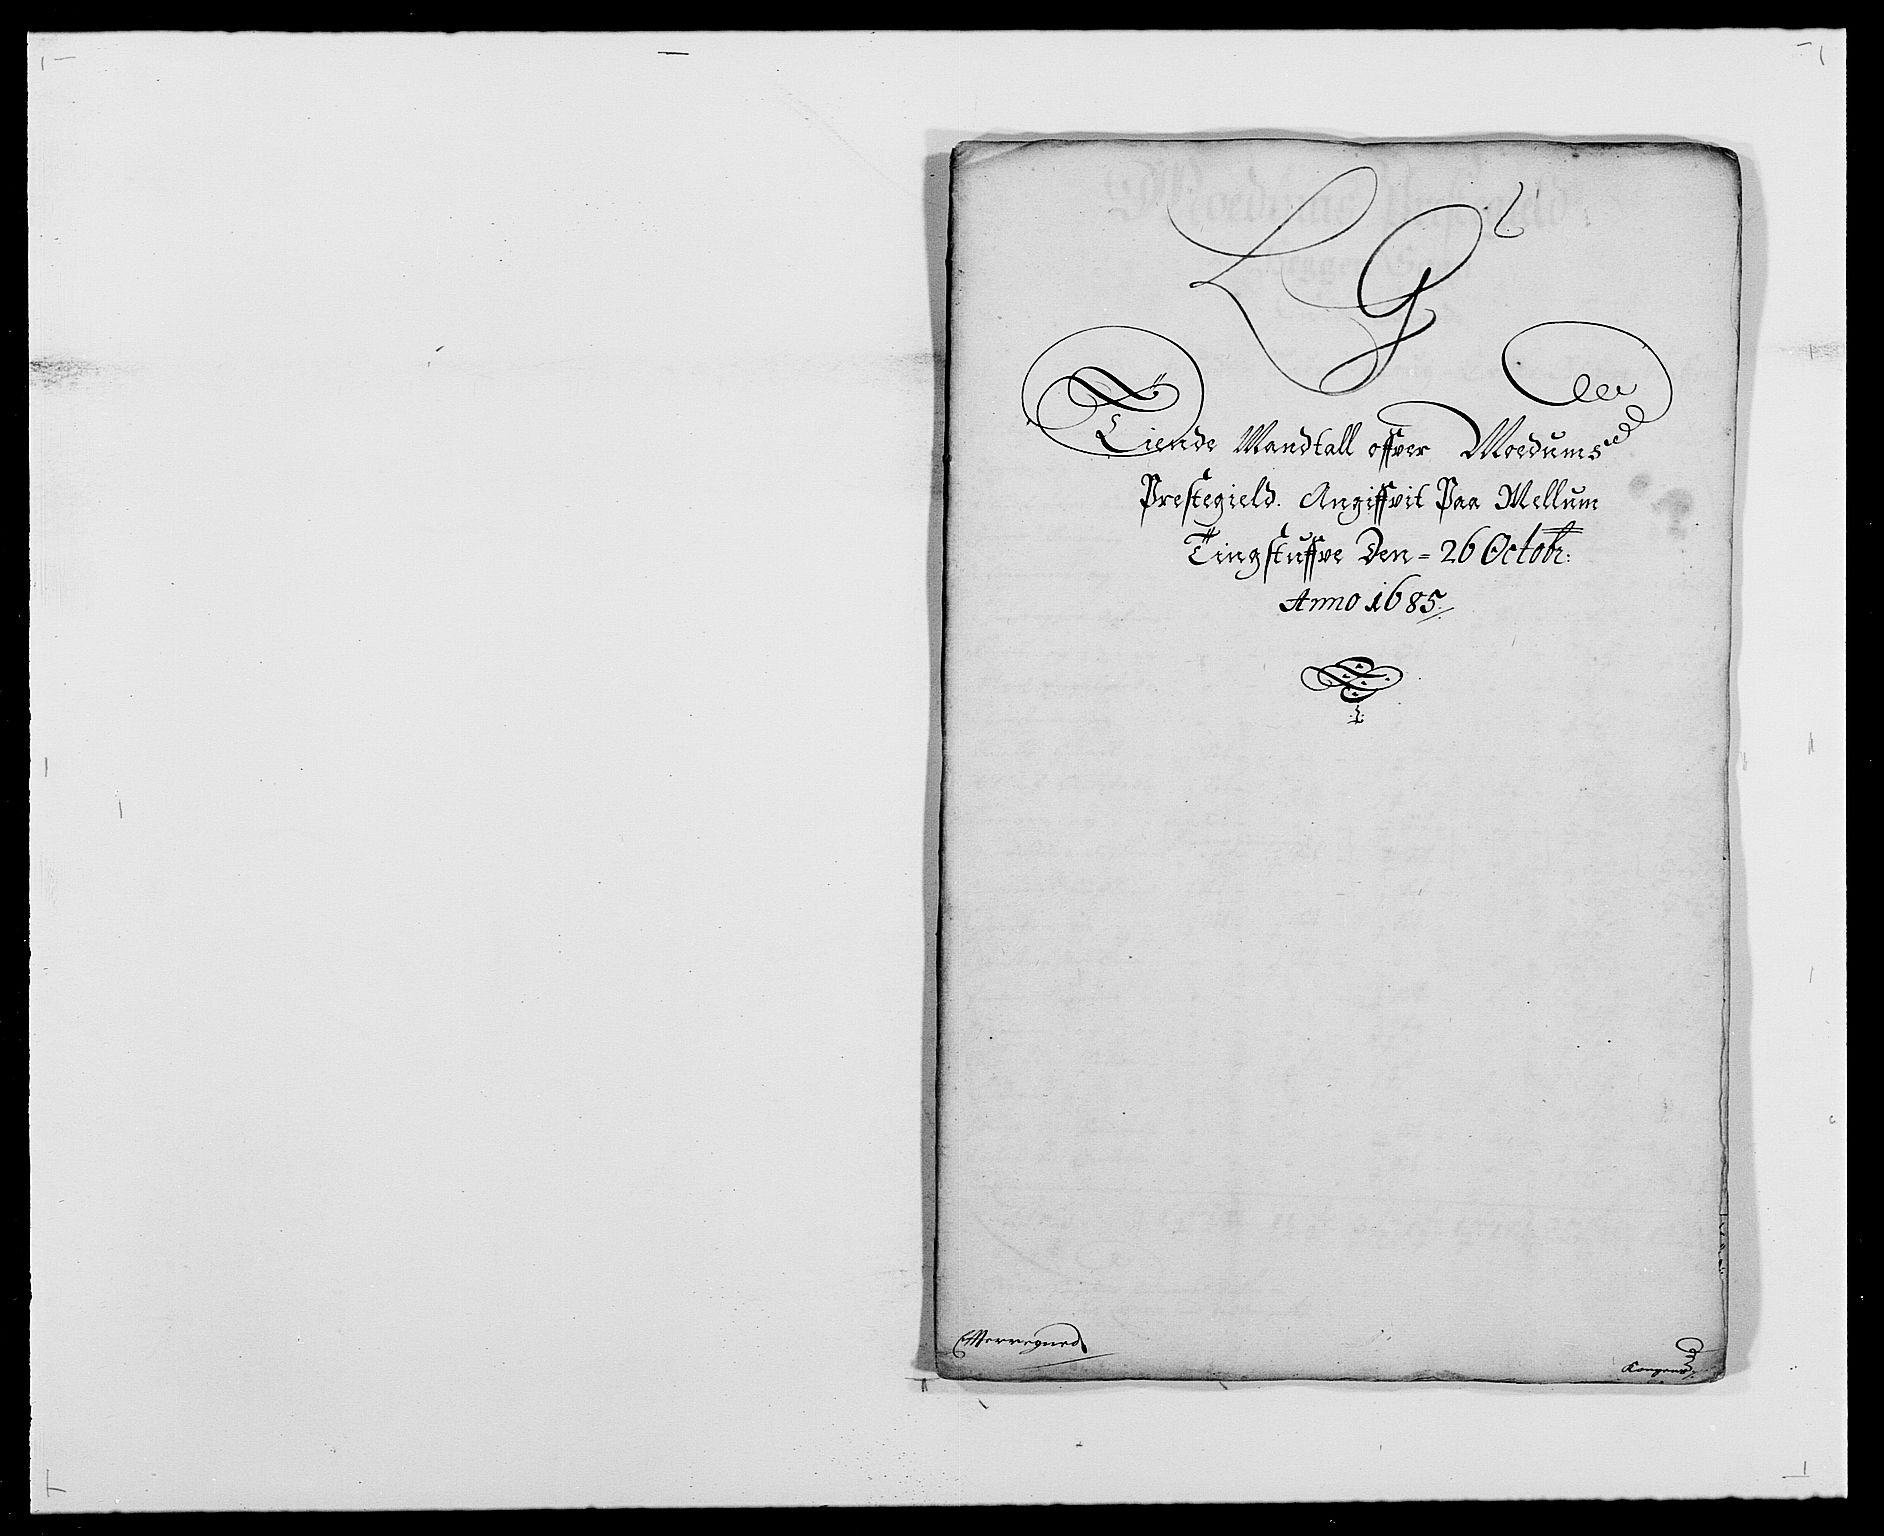 L G
Tiende Mandtall offver Moedums
Prestegield. Angiffvit Paa Mellum
Tingstuffve Den = 26 Octobr:
Anno 1685
Efterregned
Kongens